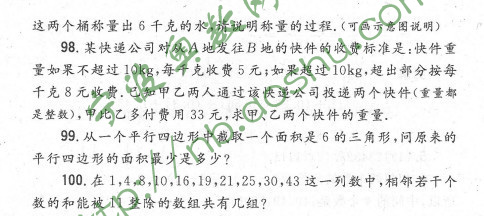 这两个桶称量出6千克的水,请说明称量的过程.(可画示意图说明)
98. 某快递公司对从A地发往B地的快件的收费标准是:快件重
量如果不超过10kg,每千克收费5元;如果超过10kg,超出部分按每
千克8元收费.已知甲乙两人通过该快递公司投递两个快件(重量都
是整数),甲比乙多付费用33元,求甲、乙两个快件的重量.
99. 从一个平行四边形中截取一个面积是6的三角形,问原来的
平行四边形的面积最少是多少?
100. 在1,4,8,10,16,19,21,25,30,43这一列数中,相邻若干个
数的和能被11整除的数组共有几组?